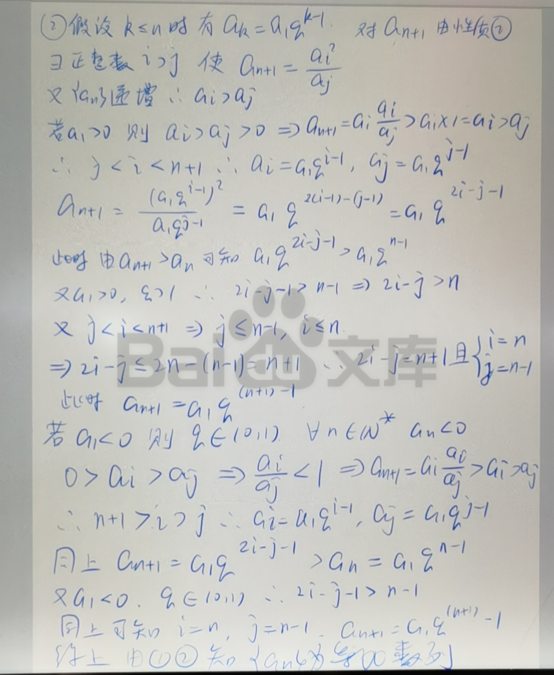 ② 假设 k≤n 时有 aₖ=a₁qᵏ⁻¹. 对 aₙ₊₁ 由性质②
∃正整数 i>j 使 aₙ₊₁ = aᵢ²/aⱼ
又{aₙ}递增 ∴ aᵢ>aⱼ
若a₁>0 则 aᵢ>aⱼ>0 ⇒ aₙ₊₁=aᵢ aᵢ/aⱼ >aᵢ×1=aᵢ>aⱼ
∴ j<i<n+1 ∴ aᵢ=a₁qⁱ⁻¹, aⱼ=a₁qʲ⁻¹
aₙ₊₁ = (a₁qⁱ⁻¹)²/a₁qʲ⁻¹ = a₁q²⁽ⁱ⁻¹⁾⁻⁽ʲ⁻¹⁾ = a₁q²ⁱ⁻ʲ⁻¹
此时 由aₙ₊₁>aₙ 可知 a₁q²ⁱ⁻ʲ⁻¹>a₁qⁿ⁻¹
又a₁>0, q>1 ∴ 2i-j-1>n-1 ⇒ 2i-j>n
又 j<i<n+1 ⇒ j≤n-1, i≤n
⇒ 2i-j≤2n-(n-1)=n+1 ∴ 2i-j=n+1且{i=n j=n-1
此时 aₙ₊₁=a₁q⁽ⁿ⁺¹⁾⁻¹
若 a₁<0 则 q∈(0,1) ∀n∈N* aₙ<0
0>aᵢ>aⱼ ⇒ aᵢ/aⱼ<1 ⇒ aₙ₊₁=aᵢ aᵢ/aⱼ >aᵢ>aⱼ
∴ n+1>i>j ∴ aᵢ=a₁qⁱ⁻¹, aⱼ=a₁qʲ⁻¹
同上 aₙ₊₁=a₁q²ⁱ⁻ʲ⁻¹>aₙ=a₁qⁿ⁻¹
又a₁<0. q∈(0,1) ∴ 2i-j-1>n-1
同上可知 i=n, j=n-1. aₙ₊₁=a₁q⁽ⁿ⁺¹⁾⁻¹
综上 由①②知 {aₙ}为等比数列
Bai百文库